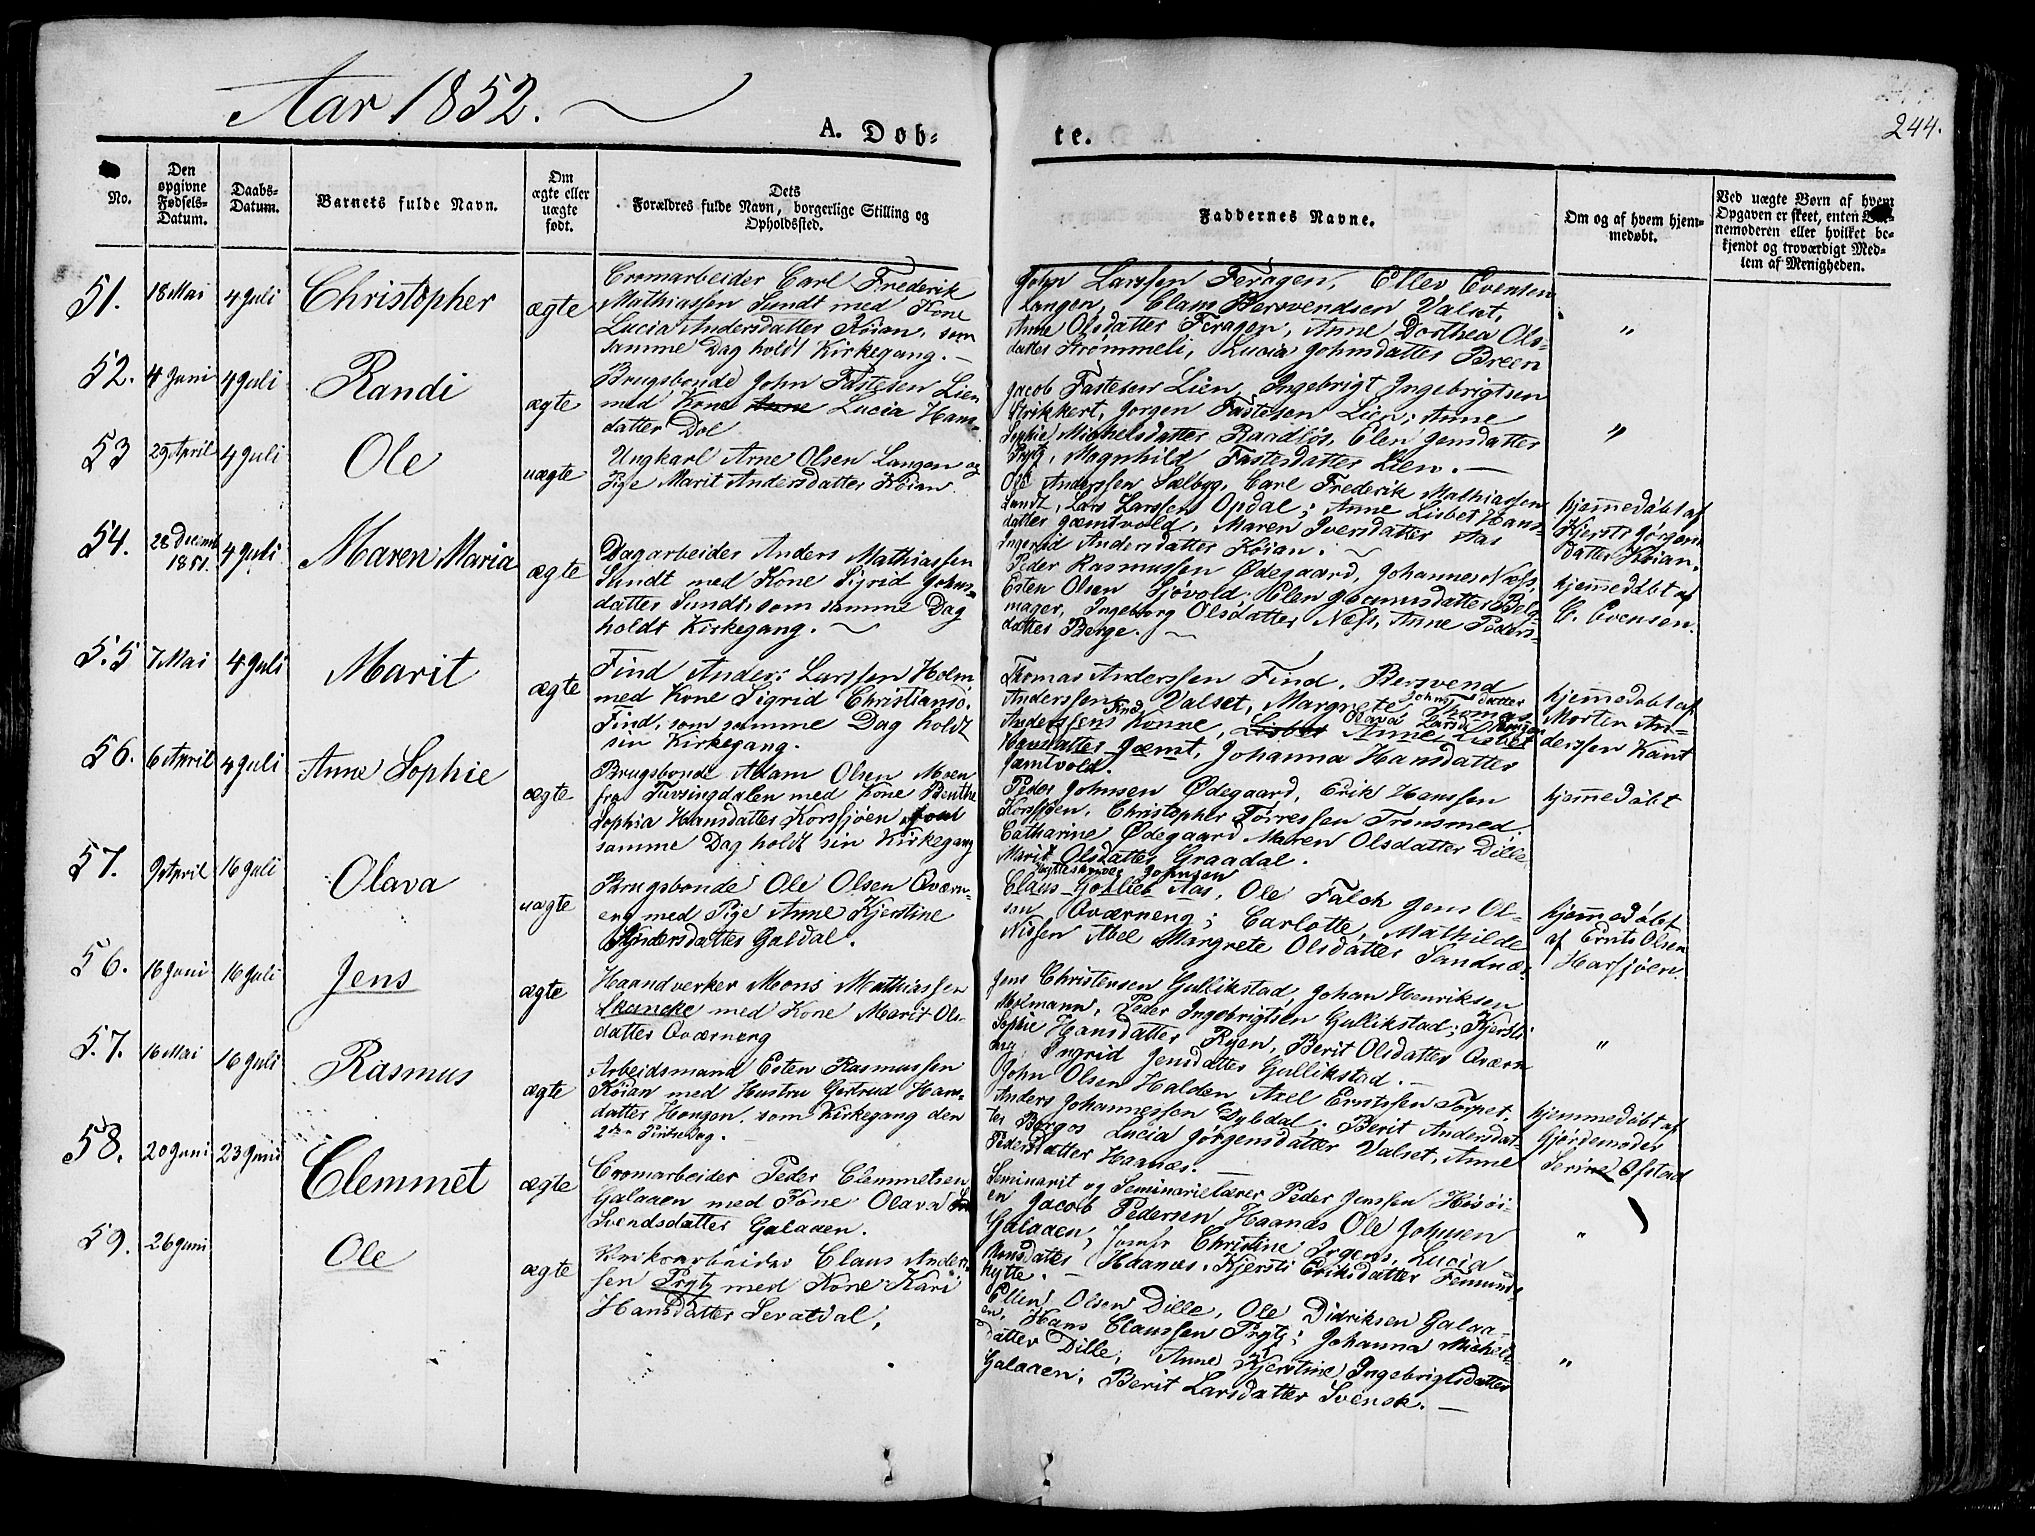 Aar 1852.
A. Døb-
te.
244.
No.
Den
opgivne
Fødsels-
Datum.
Daabs-
Datum.
Barnets fulde Navn.
Om
ægte eller
uægte
født.
Dets
Forældres fulde Navn, borgerlige Stilling og
Opholdssted.
Faddernes Navne.
Om og af hvem hjem-
medøbt.
Ved uægte Børn af hvem
Opgaven er skeet, enten
nemoderen eller hvilket be-
kjendt og troværdigt Med-
lem af Menigheden.
51. 18 Mai 4 Juli Christopher ægte
Cromarbeider Carl Frederik
Mathiassen Sundt med Kone
Lucia Andersdatter Køian, som
samme Dag holdt Kirkegang. —
John Larssen Feragen, Ellev Evensen
Langen, Claus Bersvendsen Valset,
Anne Olsdatter Feragen, Anne Dorthea Ols-
datter Strømmeli, Lucia Johnsdatter Breen
"
52. 4 Juni 4 Juli Randi ægte
Brugsbonde John Fastesen Lien
med Kone Anne Lucia Hans-
datter Dal
Jacob Fastesen Lien, Ingebrigt Ingebrigtsen
Strikkert, Jørgen Fastesen Lien; Anne
Sophie Michelsdatter Raadløs, Elen Jensdatter
Prytz, Magnhild Fastesdatter Lien. —
"
53 29 April 4 Juli Ole uægte
Ungkarl Arne Olsen Langen og
Pige Marit Andersdatter Køian.
Ole Anderssen Sælbyg, Carl Frederik Mathiassen
Sundt, Lars Larssen Opdal; Anne Lisbet Hans-
datter Jæmtvold, Maren Iversdatter Aas
Ingerid Andersdatter Køian. —
hjemmedøbt af
Kjersti Jørgens
datter Køian.
54. 28 Decemb 1851. 4 Juli Maren Maria ægte
Dagarbeider Anders Mathiassen
Sundt med Kone Sigrid Johns-
datter Sundt, som samme Dag
holdt Kirkegang. —
Peder Rasmussen Ødegaard, Johannes Næss,
Esten Olsen Sjøvold, Elen
mager, Ingeborg Olsdatter Næss, Anne Peders-
datter Berge. —
hjemmedøbt af
C. Evensen.
55 7 Mai 4 Juli Marit ægte
Find Anders Larssen Holm
med Kone Sigrid Christiansd.
Find, som samme Dag holdt
sin Kirkegang.
Thomas Anderssen Find, Bersvend
Anderssen Valset, Margrete Johnsdatter
Anderssens Konne, Lisbet Anne Lisbet
Hansdatter Jæmt, Johanna Hansdatter
Jæmtvold.
hjemmedøbt af
Morten An-
derssen Kant
56. 6 April 4 Juli Anne Sophie ægte
Brugsbonde Adam Olsen Moen
fra Tufsingdalen med Kone Benthe
Sophia Hansdatter Korssjøen som
samme Dag holdt sin Kirkegang
Peder Johnsen Ødegaard, Erik Hanssen
Korssjøen, Christopher Torressen Tronsmed,
Catharine Ødegaard, Maren Olsdatter Dille
Marit Olsdatter Graadal.
hjemmedøbt
57. 9 April 16 Juli Olava uægte
Brugsbonde Ole Olsen Qværn-
eng med Pige Anne Kjerstine
Andersdatter Galdal.
Hytteskriver Johnsen
Claus Gotlieb Aas, Ole Falch Jens Ol-
sen Qværneng; Carlotte Mathilde
Nissen Abel Margrete Olsdatter Sandnæs
hjemmedøbt
af Ernts Olsen
Harsjøen.
56. 16 Juni 16 Juli Jens ægte
Haandverker Mons Mathiassen
Skancke med Kone Marit Ols-
datter Qværneng
Jens Christensen Gullikstad, Johan Henriksen
Molmann, Peder Ingebrigtsen Gullikstad; Kjersti
Sophie Hansdatter Ryen, Berit Olsdatter Qværn
eng, Ingrid Jensdatter Gullikstad. —
"
57. 16 Mai 16 Juli Rasmus ægte
Arbeidsmand Esten Rasmussen
Køian med Hustru Gertrud Hans-
datter Hougen, som Kirkegang den
2den Pintsedag.
John Olsen Halden, Axel Erntssen Torpet,
Anders Johannessen Dybdal; Berit Andersdat-
ter Borgos Lucia Jørgensdatter Valset, Anne
Pedersdatter Haanæs.
hjemmedøbt af
Gjordemoder
Serine Øfstad
58. 20 Juni 23 Juni Clemmet ægte
Cromarbeider Peder Clemmetsen
Galaaen med Kone Olava
Svendsdatter Galaaen.
Seminarist og Seminarielærer Peder Jenssen Hisøi-
en Jacob Pedersen Haanæs Ole Johnsen
Galaaen; Jomfr Christine Irgens, Lucia
Monsdatter Haanæs, Kjersti Eriksdatter Femunds-
hytte. —
"
59. 26 Juni Ole ægte
Verksarbeider Claus Ander-
sen Prytz med Kone Kari
Hansdatter Sevatdal,
Ellen Olsen Dille, Ole Didriksen Galaa-
en, Hans Claussen Prytz; Johanna Michels-
datter Dille, Anne Kjerstine Ingebrigtsdatter
Galaaen; Berit Larsdatter Svensk. —
"